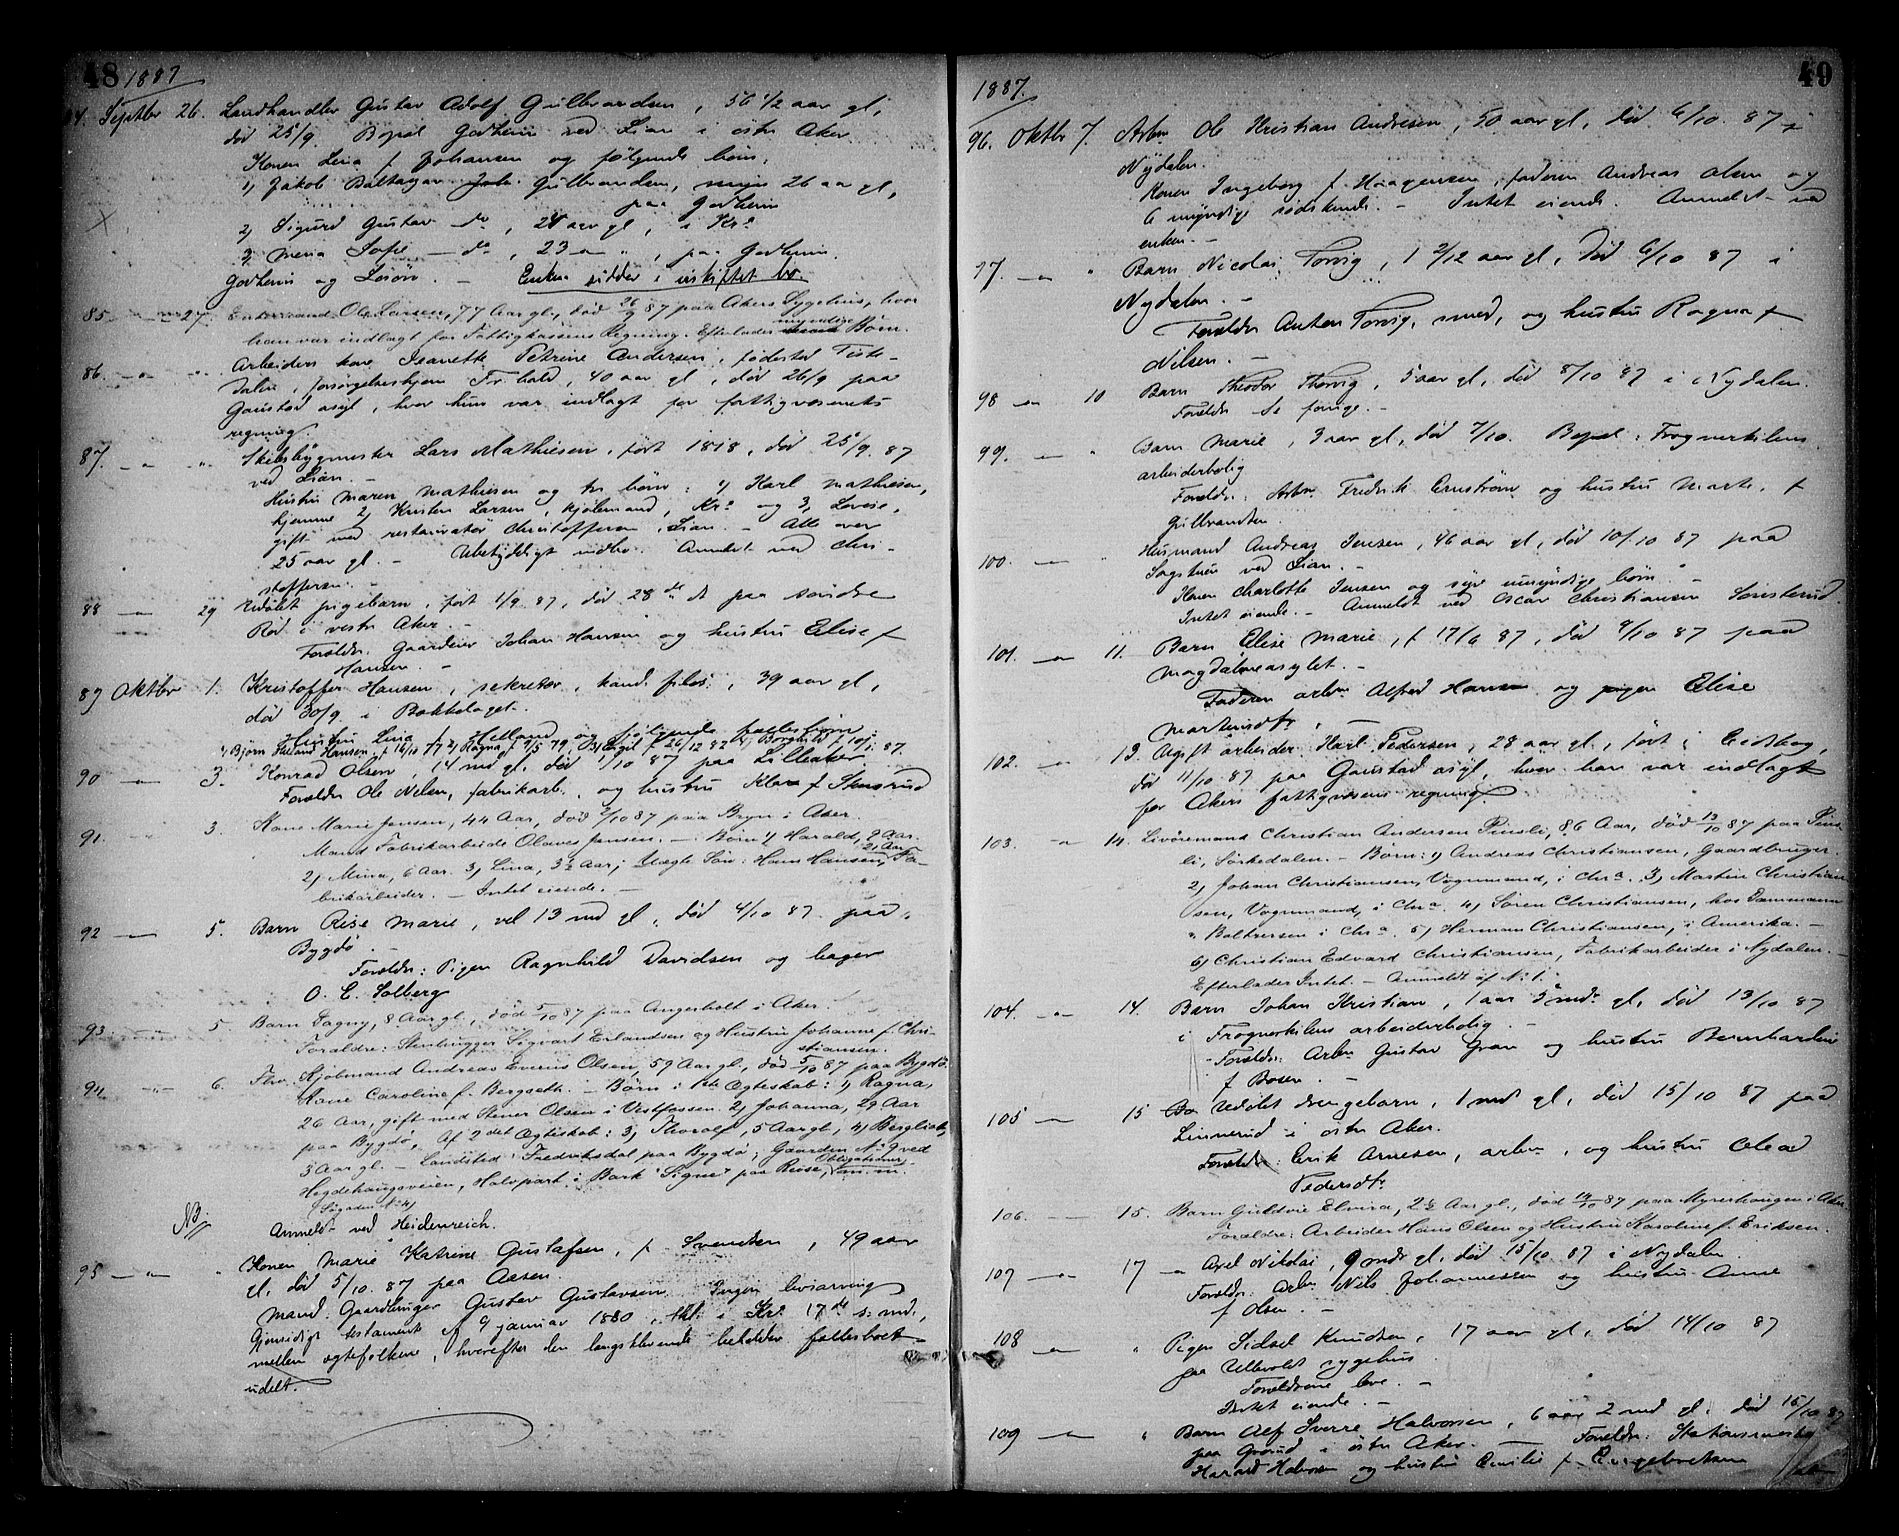 48 1887
84. Septbr 26. Landhandler Gustav Adolf Gulbrandsen, 56 1/2 aar gl,
død 25/9. Bopæl Godheim ved Lian i østre Aker
Konen Lina f. Johansen og følgende børn,
1) Jakob Baltazar Gulbrandsen, 26 aar gl,
paa Godheim
2) Sigurd Gustav do, 24 aar gl, i Kra
3) Sofie do, 23 " ", paa Godheim.
Godheim og Løsøre. — Enken sidder i uskiftet bo
85 — " — 27. Enkemand Ole Larsen, 77 Aar gl, død 26/9 87 paa Akers Sygehus, hvor
han var indlagt for Fattigkassens Regning. Efterlader myndige Børn.
86. — " — " Arbeiders kone Jeanette Petrine Andersen, fødested Tiste-
dalen, forsørgelseshjem Fr.hald, 40 aar gl, død 26/9 paa
Gaustad asyl, hvor hun var indlagt for fattigvæsenets
regning.
87. — " — " Skibsbygmester Lars Mathiesen, født 1818, død 25/9 87
ved Lian. —
Hustru Maren Mathiesen og tre børn: 1) Karl Mathiesen,
hjemme 2) Kristen Larsen, kjølemand, Kra og 3, Lovise,
gift med restauratør Christoffersen, Lian. — Alle over
25 aar gl. — Ubetydeligt indbo. Anmeldt ved Chri-
stoffersen. —
88 — " — 29 Udøbt pigebarn, født 1/9 87, død 28de ds paa søndre
Rød i vestre Aker. —
Forældre: Gaardeier Johan Hansen og hustru Elise f
Hansen. —
89 Oktbr 1. Kristoffer Hansen, sekretær, kand. filos., 39 aar gl,
død 30/9 i Bækkelaget.
Hustru Lina f Helland og følgende fællesbørn:
1) Bjørn Helland Hansen, f 16/10 77 2) Ragna f 9/5 79, 3) Eigil f 26/12 82 4) Borghild f 10/1 87.
90 — " — 3. Konrad Olsen, 14 md gl, død 1/10 87 paa Lilleaker
Forældre Ole Nilsen, fabrikarb., og hustru Klara f Stensrud
91. — " — 3. Kone Marie Jensen, 44 Aar, død 2/10 87 paa Bryn i Aker.
Mand Fabrikarbeider Olaves Jensen. — Børn 1) Harald, 9 Aar.
2) Mina, 6 Aar. 3) Lina, 3 1/2 Aar; Uægte Søn: Hans Hansen, 21 Aar, Fa-
brikarbeider. — Intet eiende. —
92 — 5. Barn Marie, vel 13 md gl, død 4/10 87 paa
Bygdø. —
Forældre: Pigen Ragnhild Davidsen og bager
O. E. Solberg
93. — " — 5. Barn Dagny, 8 Aar gl, død 5/10 87 paa Angerholt i Aker.
Forældre: Stenhugger Sigvart Erlandsen og Hustru Johanne f. Chri-
stiansen.
94 — " — 6. Fhv. Kjøbmand Andreas Evenis Olsen, 59 Aar gl, død 5/10 87 paa Bygdø.
Kone Caroline f. Bergseth. — Børn i 1ste Ægteskab: 1) Ragna,
26 Aar, gift med Stener Olsen i Vestfossen. 2) Johanna, 29 Aar
paa Bygdø, Af 2det Ægteskab: 3) Thoralf, 5 Aar gl, 4) Bergliot,
3 Aar gl. — Landsted "Fredriksdal" paa Bygdø, Gaarden No 9 ved
Hegdehaugsveien, Halvpart i Bark "Signe" paa Reise, Obligationer, m. m.
NB. Anmeldt ved Heidenreich.
95 — " — " Konen Marie Katrine Gustafsen, f Svendsen, 49 aar
gl, død 5/10 87 paa Aasen.
Mand: Gaardbruger Gustav Gustavsen. Ingen livsarving
Gjensidigt testament af 9 januar 1880, thl. i Kra 17de s. md.
mellem ægtefolkene, hvorefter den længstlevende beholder fællesboet
udelt.
1887. 49
96. Oktbr 7. Arbm Ole Kristian Andresen, 50 aar gl, død 6/10 87 i
Nydalen.
Konen Ingeborg f. Haagensen, faderen Andreas Olsen og
6 myndige sødskende. — Intet eiende. Anmeldt ved
enken. —
97. — " — " Barn Nicolai Torvig, 1 2/12 aar gl, død 6/10 87 i
Nydalen. —
Forældre Anton Torvig, smed, og hustru Ragna f
Nilsen. —
98 — " — 10 Barn Theodor Thorvig, 5 aar gl, død 8/10 87 i Nydalen.
Forældre se forrige. —
99. — " — " Barn Marie, 3 aar gl, død 7/10. Bopæl: Frognerkilens
arbeiderbolig
Forældre: Arbm Fredrik Ernstrøm og hustru Marte f
Gulbrandsen.
100. — " — " Husmand Andreas Jensen, 46 aar gl, død 10/10 87 paa
Sagstuen ved Lian. —
Konen Charlotte Jensen og syv umyndige børn. —
Intet eiende. — Anmeldt ved Oscar Christiansen
101. — " — 11. Barn Elise Marie, f 17/6 87, død 9/10 87 paa
Magdaleneasylet. —
Faderen arbm Alfred Hansen og pigen Elise
Martinsdtr. —
102. — " — 13. Ugift arbeider Karl Pedersen, 28 aar gl, født i Eidskog,
død 11/10 87 paa Gaustad asyl, hvor han var indlagt
for Akers fattigvæsens regning.
103. — " — 14. Livøremand Christian Andersen Pinsli, 86 Aar, død 13/10 87 paa Pins-
li, Sørkedalen. — Børn: 1) Andreas Christiansen, Gaardbruger.
2) Johan Christiansen, Vognmand, i Chra. 3) Martin Christian-
sen, Vognmand, i Chra. 4) Søren Christiansen, hos Dammann
" Baltzersen i Chra. 5) Herman Christiansen, i Amerika. —
6) Christian Edvard Christiansen, Fabrikarbeider i Nydalen. —
Efterlader Intet. — Anmeldt af No 1.
104. — " — 14. Barn Johan Kristian, 1 aar 5 mdr gl, død 13/10 87
i Frognerkilens arbeiderbolig. —
Forældre: Arbm Gustav Gran og hustru Bernhardine
f Bosen. —
105 — " — 15 Udøbt drengebarn, 1 md gl, død 15/10 87 paa
Linnerud i østre Aker.
Forældre: Erik Arnesen, arbm, og hustru Olea
Pedersdtr
106. — 15. Barn Guldvie Elvira, 2 1/2 Aar gl, død 14/10 87 paa Myrerhaugen i Aker.
Forældre: Arbeider Hans Olsen og Hustru Karoline f. Eriksen.
107 — " — 17 — " Axel Nikolai, 9 mdr gl, død 15/10 87 i Nydalen.
Forældre: Arbm Nils Johannessen og hustru Anne
f Olsen. —
108 — " — " Pigen Sidsel Knudsen, 17 aar gl, død 14/10 87
paa Ullevold sygehus.
Forældrene leve. —
Intet eiende. —
109 — " — " Barn Alf Sverre Halvorsen, 6 aar 2 md gl, død 15/10 87
paa Grorud i østre Aker. Forældre: Stationsmester
Harald Halvorsen og hustru Emilie f. Engebretsen